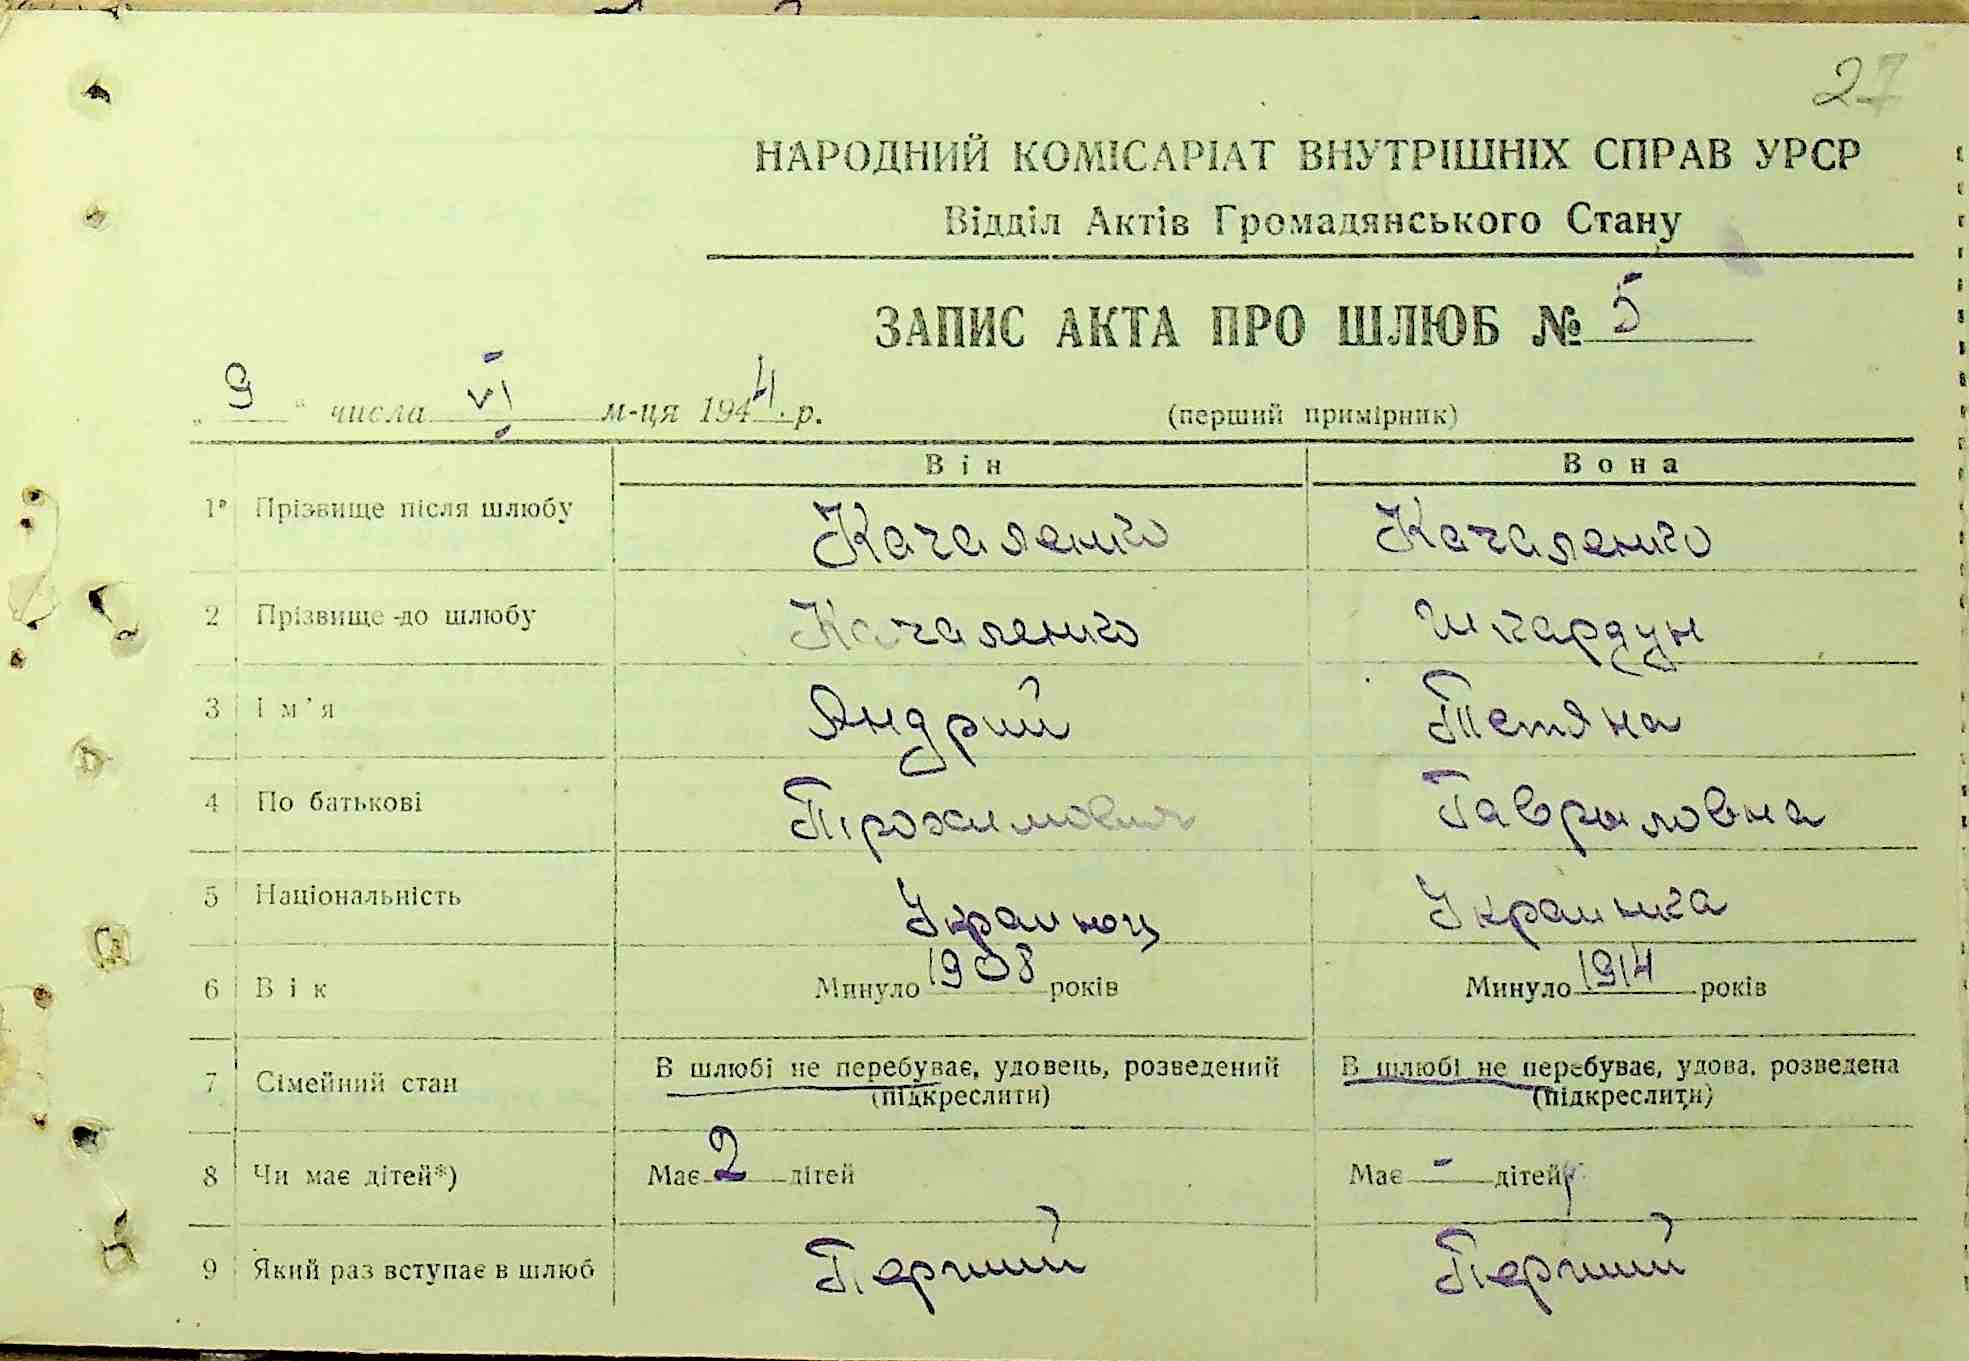 27
НАРОДНИЙ КОМІСАРІАТ ВНУТРІШНІХ СПРАВ УРСР
Відділ Актів Громадянського Стану
ЗАПИС АКТА ПРО ШЛЮБ № 5
„ 9 “ числа VI м-ця 1944 р. (перший примірник)
Він Вона
1 Прізвище після шлюбу Качаленко Качаленко
2 Прізвище до шлюбу Качаленко Шкардун
3 Ім'я Яндрий Тетяна
4 По батькові Трохимович Гаврыловна
5 Національність Украинец Украинка
6 Вік Минуло 1908 років Минуло 1914 років
7 Сімейний стан В шлюбі не перебуває, удовець, розведений В шлюбі не перебуває, удова, розведена
(підкреслити) (підкреслити)
8 Чи має дітей*) Має 2 дітей Має - дітей
9 Який раз вступає в шлюб Перший Перший